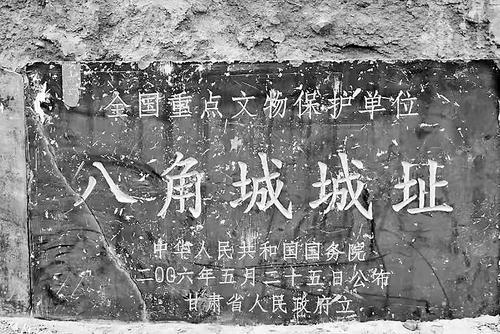 全国重点文物保护单位
八角城城址
中华人民共和国国务院
二〇〇六年五月二十五日公布
甘肃省人民政府立